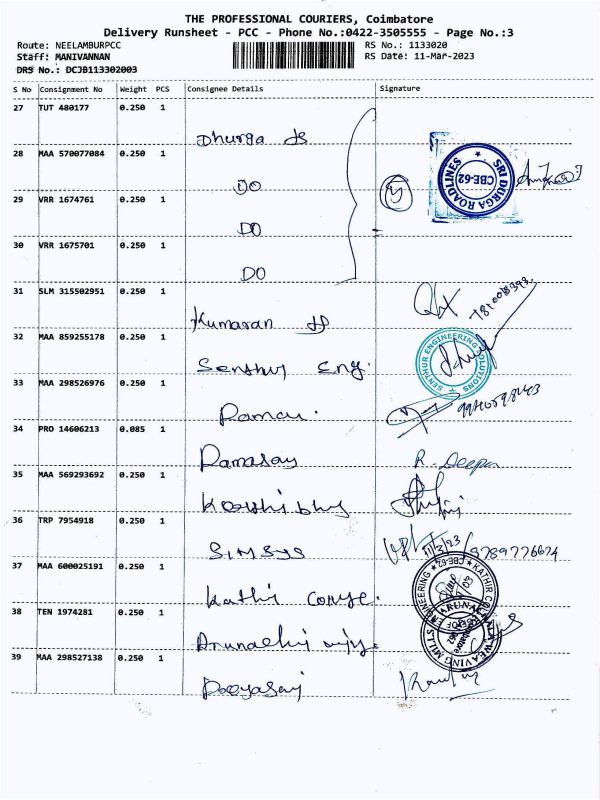 THE PROFESSIONAL COURIERS, Coimbatore
Delivery Runsheet - PCC - Phone No.:0422-3505555 - Page No.:3
Route: NEELAMBURPCC
RS No.: 1133020
Staff: MANIVANNAN
RS Date: 11-Mar-2023
DRS No.: DCJB113302003
S No Consignment No Weight PCS Consignee Details Signature
27 TUT 480177 0.250 1
Dhurga
28 MAA 570077084 0.250 1
DO
SRI DURGA ROADLINES
CBE-62
29 VRR 1674761 0.250 1
DO
30 VRR 1675701 0.250 1
DO
31 SLM 315502951 0.250 1
Kumaran
32 MAA 859255178 0.250 1
Senthur Eng.
SENTHUR ENGINEERING SOLUTIONS
33 MAA 298526976 0.250 1
Raman.
34 PRO 14606213 0.085 1
Ramasay
R. Deepa
35 MAA 569293692 0.250 1
36 TRP 7954918 0.250 1
SIMSYS
11/3/23
9789776674
37 MAA 600025191 0.250 1
Kathir
CBE-62
38 TEN 1974281 0.250 1
39 MAA 298527138 0.250 1